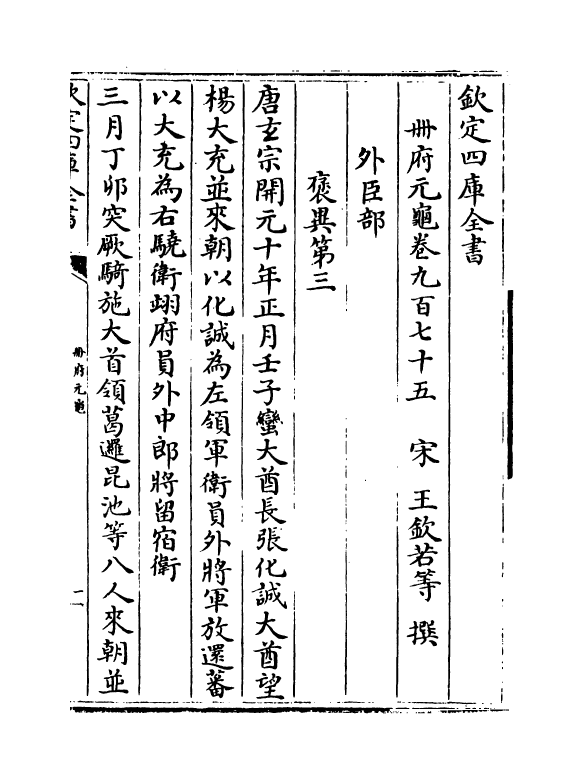 欽定四庫全書
冊府元龜卷九百七十五　宋　王欽若等　撰
外臣部
褒異第三
唐玄宗開元十年正月壬子蠻大酋長張化誠大酋望
楊大充並來朝以化誠為左領軍衛員外將軍放還蕃
以大充為右驍衛翊府員外中郎將留宿衛
三月丁卯突厥騎施大首領葛邏昆池等八人來朝並
欽定四庫全書
冊府元龜